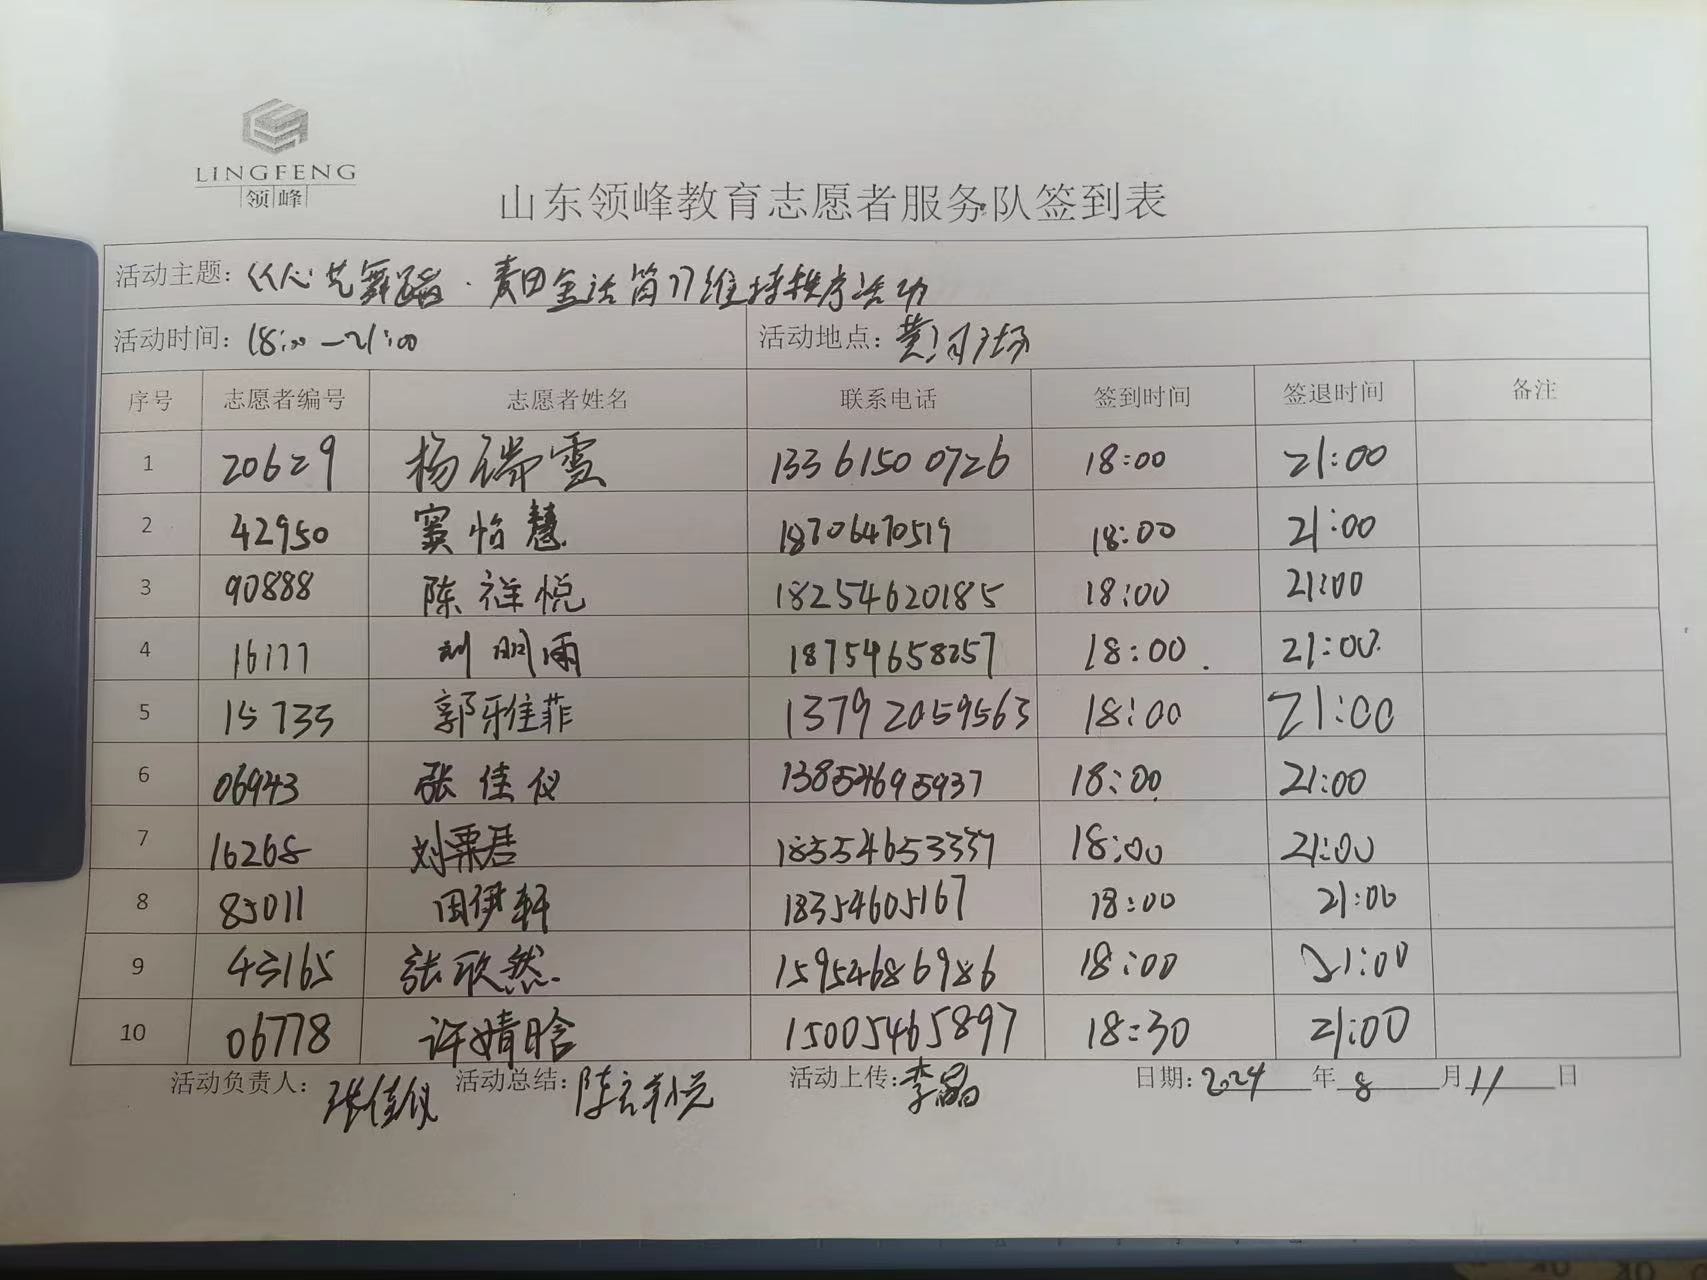 LINGFENG
领峰
山东领峰教育志愿者服务队签到表
活动主题: 舞蹈·麦田 维持秩序活动
活动时间: 18:00—21:00 活动地点: 黄河广场
序号 志愿者编号 志愿者姓名 联系电话 签到时间 签退时间 备注
1 20629 杨瑞雪 13361500726 18:00 21:00
2 42950 窦怡慧 18706470519 18:00 21:00
3 90888 陈祥悦 18254620185 18:00 21:00
4 16177 刘明雨 18754658257 18:00. 21:00.
5 15733 郭雅菲 13792059563 18:00 21:00
6 06943 张佳仪 13854695937 18:00 21:00
7 16268 刘栗君 18554653337 18:00 21:00
8 85011 田伊轩 18354605167 18:00 21:00
9 43165 张欣然. 15954686986 18:00 21:00
10 06778 许婧晗 15005465897 18:30 21:00
活动负责人: 张佳仪 活动总结: 陈祥悦 活动上传: 李晶 日期: 2024年8月11日